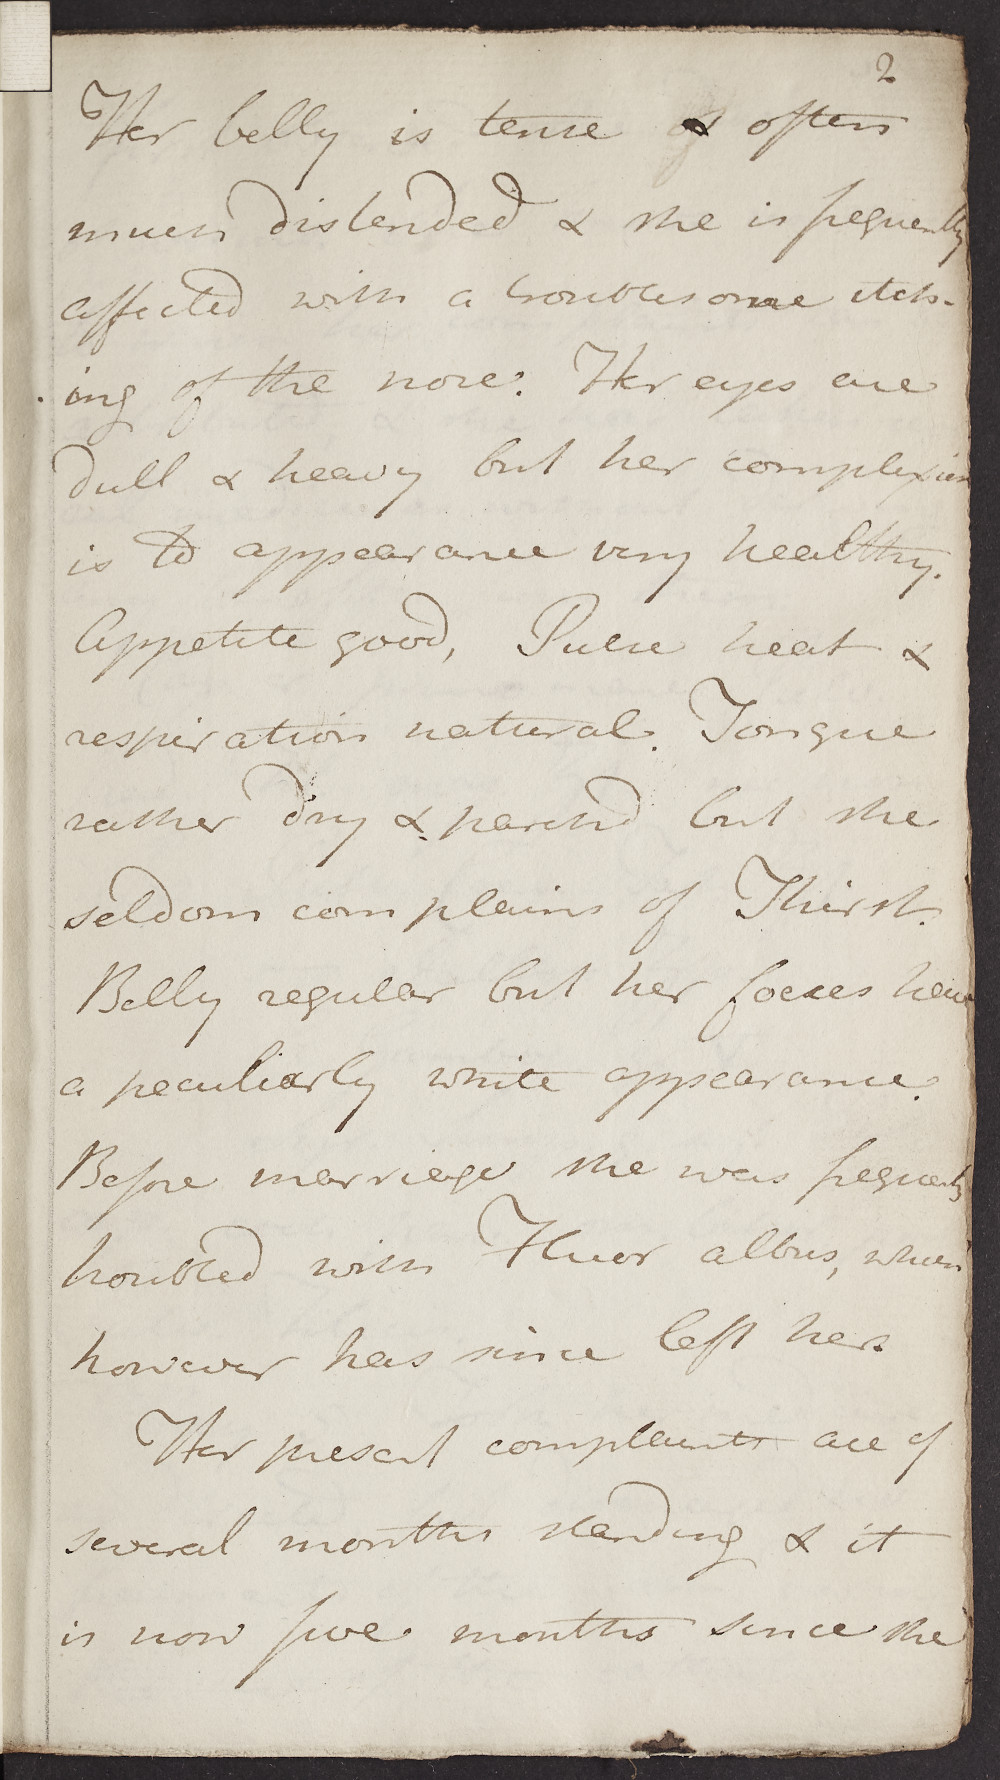 2
Her belly is tense & often
much distended & she is frequently
affected with a troublesome itch-
ing of the nose. Her eyes are
dull & heavy but her complexion
is to appearance very healthy.
Appetite good, Pulse heat &
respiration natural. Tongue
rather dry & parch'd but she
seldom complains of Thirst.
Belly regular but her foeces have
a peculiarly white appearance.
Before marriage she was frequently
troubled with Fluor albus, which
however has since left her.
Her present complaints are of
several months standing & it
is now five months since she